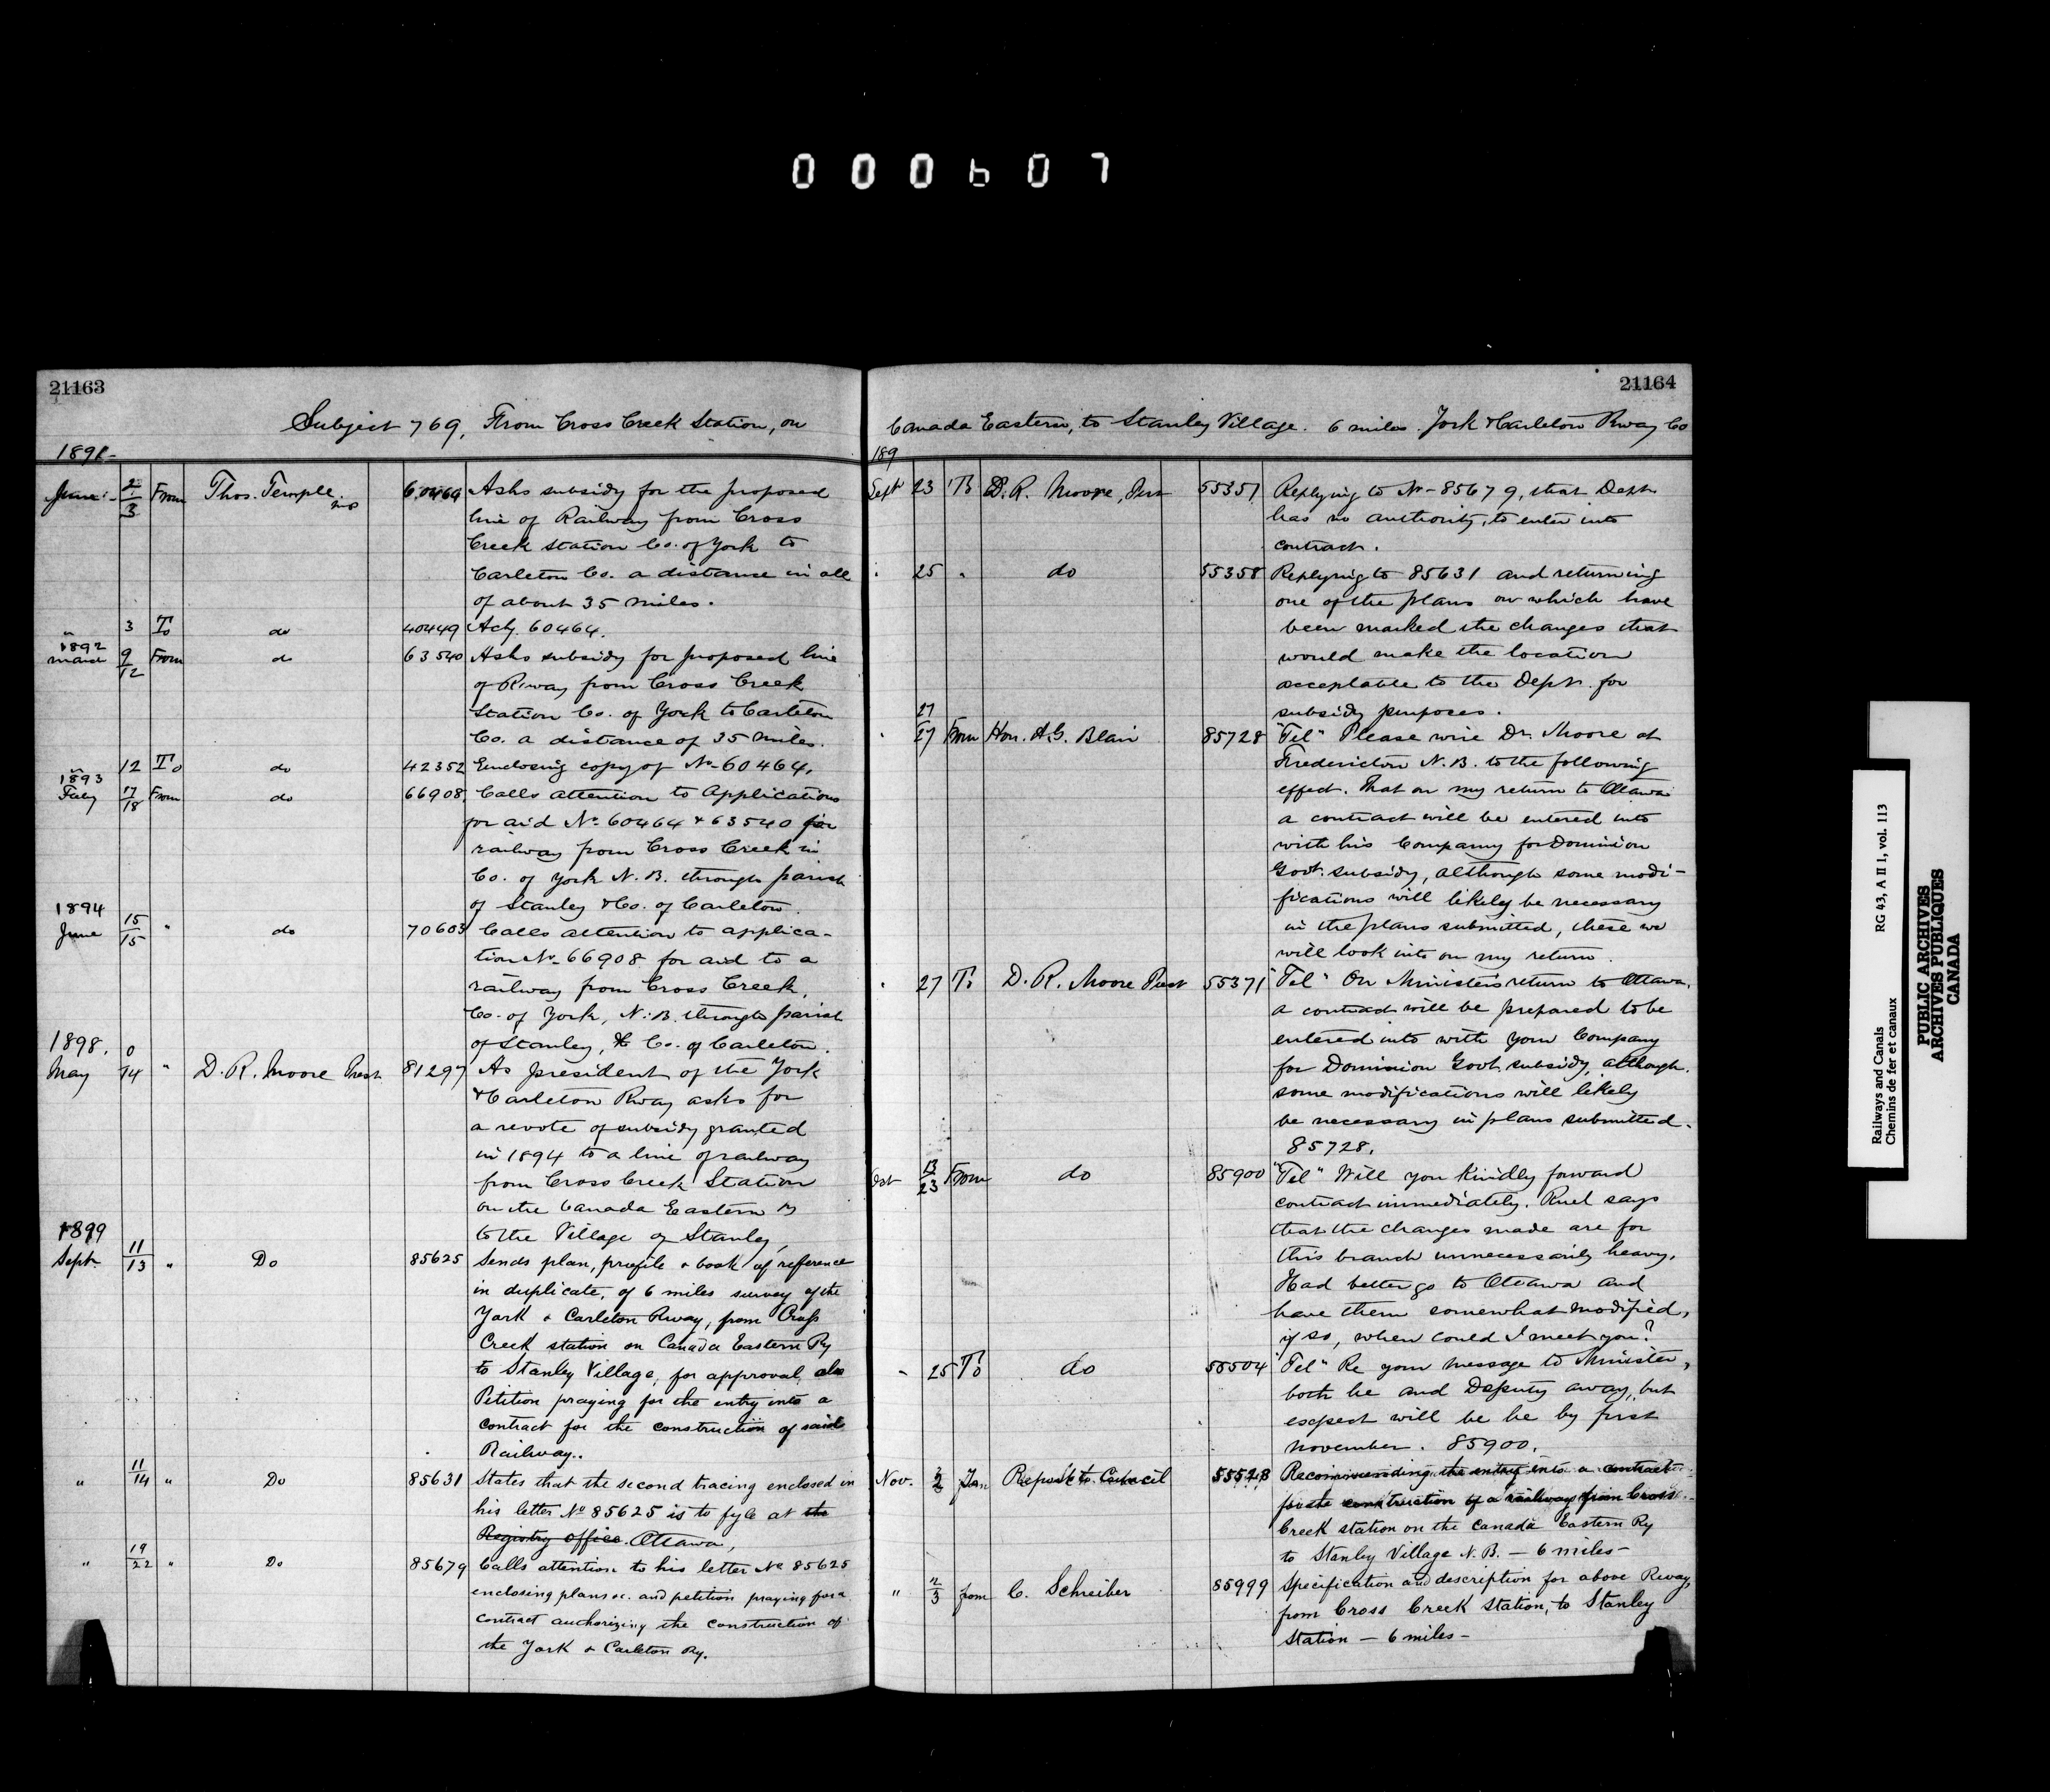 000607
21163
Subject 769, From Cross Creek Station, on
1891-
June - 2/3 From Thos. Temple MP 60464 Asks subsidy for the proposed
line of Railway from Cross
Creek station Co. of York to
Carleton Co. a distance in all
of about 35 miles.
" 3 To do 40449 Ack. 60464.
1892
March 9/12 From do 63540 Asks subsidy for proposed line
of Rway from Cross Creek
Station Co. of York to Carleton
Co. a distance of 35 miles.
" 12 To do 42352 Enclosing copy of No 60464.
1893
July 17/18 From do 66908 Calls attention to Applications
for aid No 60464 & 63540 for
railway from Cross Creek in
Co. of York N.B. through parish
of Stanley & Co. of Carleton.
1894
June 15/15 " do 70603 Calls attention to applica-
tion No 66908 for aid to a
railway from Cross Creek,
Co. of York, N.B. through parish
of Stanley, & Co. of Carleton.
1898.
May 0/14 " D. R. Moore Prest 81297 As president of the York
& Carleton Rway asks for
a revote of subsidy granted
in 1894 to a line of railway
from Cross Creek Station
on the Canada Eastern Ry
to the Village of Stanley,
1899
Sept. 11/13 " Do 85625 Sends plan, profile & book of reference
in duplicate, of 6 miles survey of the
York & Carleton Rway, from Cross
Creek station on Canada Eastern Ry
to Stanley Village, for approval, also
Petition praying for the entry into a
contract for the construction of said
Railway..
" 11/14 " Do 85631 States that the second tracing enclosed in
his letter No 85625 is to fyle at the
Registry office. Ottawa,
" 19/22 " Do 85679 Calls attention to his letter No 85625
enclosing plans &c. and petition praying for a
contract authorizing the construction of
the York & Carleton Ry.
21164
Canada Eastern, to Stanley Village. 6 miles. York & Carleton Rway Co
189
Sept 23 To D. R. Moore, Prest 55351 Replying to No 85679, that Dept
has no authority, to enter into
contract.
" 25 " do 55358 Replying to 85631 and returning
one of the plans on which have
been marked the changes that
would make the location
acceptable to the Dept. for
subsidy purposes.
" 27/27 From Hon. A.G. Blair 85728 "Tel" Please wire Dr. Moore at
Fredericton N.B. to the following
effect. That on my return to Ottawa
a contract will be entered into
with his Company for Dominion
Govt. subsidy, although some modi-
fications will likely be necessary
in the plans submitted, these we
will look into on my return.
" 27 To D. R. Moore Prest 55371 "Tel" On Minister's return to Ottawa,
a contract will be prepared to be
entered into with your Company
for Dominion Govt subsidy, although
some modifications will likely
be necessary in plans submitted.
85728.
Oct 13/23 From do 85900 "Tel" Will you kindly forward
contract immediately. Ruel says
that the changes made are for
this branch unnecessarily heavy.
Had better go to Ottawa and
have them somewhat modified,
if so, when could I meet you?
" 25 To do 55504 "Tel" Re your message to Minister,
both he and Deputy away, but
expect will be he by first
November. 85900.
Nov. Report to Council Recommending the entry into a contract
for the construction of a railway from Cross
Creek station on the Canada Eastern Ry
to Stanley Village N.B. - 6 miles -
" 2/3 from C. Schreiber 85999 Specification and description for above Rway,
from Cross Creek Station, to Stanley
Station - 6 miles -
Railways and Canals RG 43, A II 1, vol. 113
Chemins de fer et canaux
PUBLIC ARCHIVES
ARCHIVES PUBLIQUES
CANADA